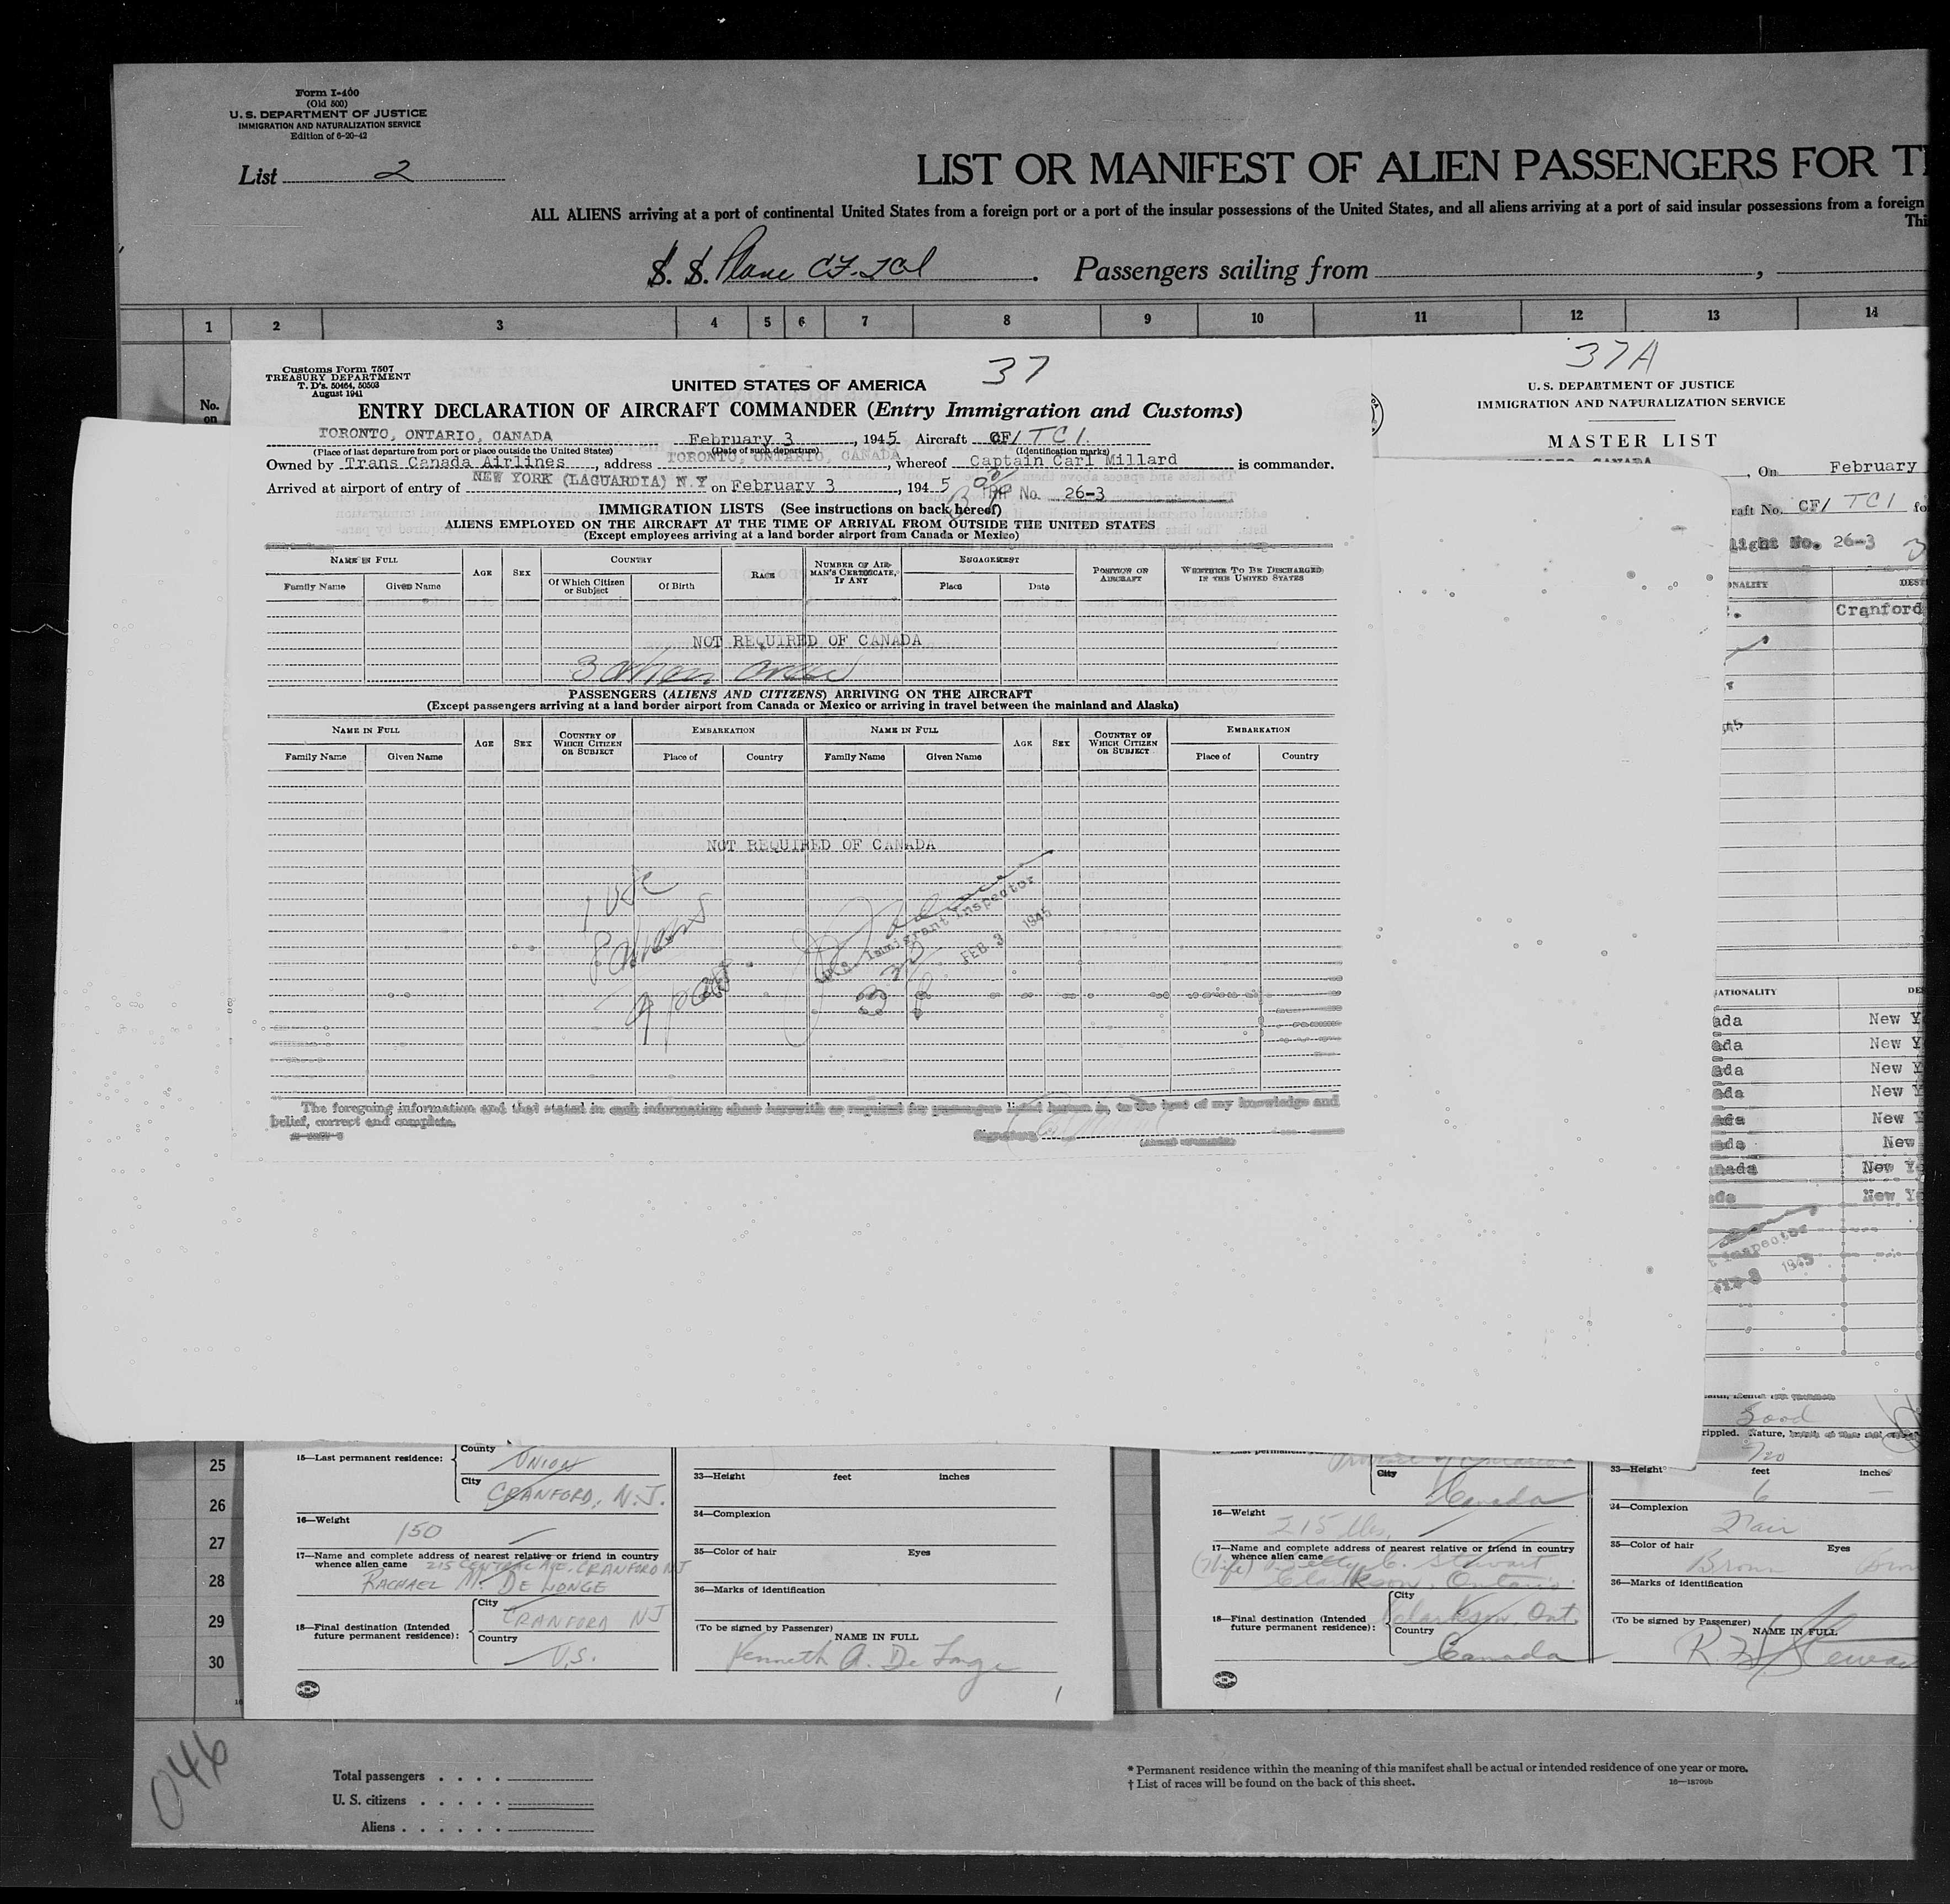 Form I-400
(Old 500)
U. S. DEPARTMENT OF JUSTICE
IMMIGRATION AND NATURALIZATION SERVICE
Edition of 6-20-42
List 2
LIST OR MANIFEST OF ALIEN PASSENGERS FOR T
ALL ALIENS arriving at a port of continental United States from a foreign port or a port of the insular possessions of the United States, and all aliens arriving at a port of said insular possessions from a foreign
Thi
S. S. Plane CF-TCI. Passengers sailing from , 
1 2 3 4 5 6 7 8 9 10 11 12 13 14
No. on
Customs Form 7507
TREASURY DEPARTMENT
T. D's. 50464, 50503
August 1941
37
UNITED STATES OF AMERICA
ENTRY DECLARATION OF AIRCRAFT COMMANDER (Entry Immigration and Customs)
TORONTO, ONTARIO, CANADA February 3, 1945 Aircraft CF/ TCI.
(Place of last departure from port or place outside the United States) (Date of such departure) (Identification marks)
Owned by Trans Canada Airlines, address TORONTO, ONTARIO, CANADA, whereof Captain Carl Millard is commander.
Arrived at airport of entry of NEW YORK (LAGUARDIA) N.Y on February 3, 1945 TRIP No. 26-3
IMMIGRATION LISTS (See instructions on back hereof)
ALIENS EMPLOYED ON THE AIRCRAFT AT THE TIME OF ARRIVAL FROM OUTSIDE THE UNITED STATES
(Except employees arriving at a land border airport from Canada or Mexico)
NAME IN FULL AGE SEX COUNTRY RACE NUMBER OF AIRMAN'S CERTIFICATE, IF ANY ENGAGEMENT POSITION ON AIRCRAFT WHETHER TO BE DISCHARGED IN THE UNITED STATES
Family Name Given Name Of Which Citizen or Subject Of Birth Place Date
NOT REQUIRED OF CANADA
3 alien crew
PASSENGERS (ALIENS AND CITIZENS) ARRIVING ON THE AIRCRAFT
(Except passengers arriving at a land border airport from Canada or Mexico or arriving in travel between the mainland and Alaska)
NAME IN FULL AGE SEX COUNTRY OF WHICH CITIZEN OR SUBJECT EMBARKATION NAME IN FULL AGE SEX COUNTRY OF WHICH CITIZEN OR SUBJECT EMBARKATION
Family Name Given Name Place of Country Family Name Given Name Place of Country
NOT REQUIRED OF CANADA
1 USC
8 aliens
9 pass.
U.S. Immigrant Inspector
FEB 3 1945
The foregoing information and that stated in each information sheet herewith as required for passengers listed hereon is, to the best of my knowledge and
belief, correct and complete.
Signature
37A
U. S. DEPARTMENT OF JUSTICE
IMMIGRATION AND NATURALIZATION SERVICE
MASTER LIST
, On February
raft No. CF/ TCI fo
light No. 26-3
ONALITY DEST
Cranford
NATIONALITY DE
ada New Y
ada New Y
ada New Y
ada New Y
ada New Y
ada New
anada New Y
ada New Yo
t Inspector
1945
25
26
27
28
29
30
15—Last permanent residence:
County UNION
City CRANFORD, N.J.
16—Weight 150
17—Name and complete address of nearest relative or friend in country
whence alien came 215 CENTRAL AVE. CRANFORD NJ
RACHAEL M. DE LONGE
18—Final destination (Intended future permanent residence):
City CRANFORD NJ
Country U.S.
33—Height feet inches
34—Complexion
35—Color of hair Eyes
36—Marks of identification
(To be signed by Passenger)
NAME IN FULL
Kenneth A. De Longe
1
City Canada
16—Weight 215 lbs.
17—Name and complete address of nearest relative or friend in country
whence alien came
(Wife) Betty C. Stewart
Clarkson, Ontario
18—Final destination (Intended future permanent residence):
City Clarkson, Ont.
Country Canada
Good
rippled. Nature,
No
33—Height feet inches
6 —
34—Complexion
Fair
35—Color of hair Eyes
Brown
36—Marks of identification
(To be signed by Passenger)
NAME IN FULL
046
Total passengers . . . .
U. S. citizens . . . . .
Aliens . . . . . .
* Permanent residence within the meaning of this manifest shall be actual or intended residence of one year or more.
† List of races will be found on the back of this sheet.
16—18709b